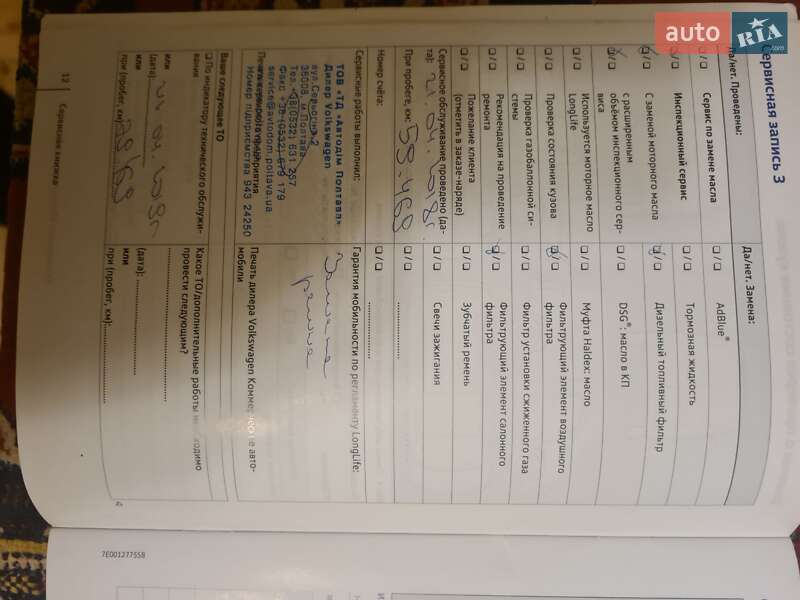 auto RIA.com
Сервисная запись 3
Да/нет. Проведены:
❏/❏ Сервис по замене масла
❏/❏ Инспекционный сервис
❏/❏ С заменой моторного масла
❏/❏ с расширенным
объёмом инспекционного сер-
виса
❏/❏ Используется моторное масло
LongLife
❏/❏ Проверка состояния кузова
❏/❏ Проверка газобаллонной си-
стемы
❏/❏ Рекомендация на проведение
ремонта
❏/❏ Пожелание клиента
(отметить в заказе-наряде)
Сервисное обслуживание проведено (да-
та): 21.04.2018г
При пробеге, км: 59.468
Номер счёта:
Сервисные работы выполнил:
ТОВ «ТД «Автодім Полтава»
Дилер Volkswagen
36008 м.Полтава
service@avtodom.poltava.ua
Номер підприємства 943 24250
Ваше следующее ТО
❏ По индикатору технического обслужи-
вания
или
(дата):
или
при (пробег, км)
Да/нет. Замена:
❏/❏ AdBlue®
❏/❏ Тормозная жидкость
❏/❏ Дизельный топливный фильтр
❏/❏ DSG®: масло в КП
❏/❏ Муфта Haldex: масло
❏/❏ Фильтрующий элемент воздушного
фильтра
❏/❏ Фильтр установки сжиженного газа
❏/❏ Фильтрующий элемент салонного
фильтра
❏/❏ Зубчатый ремень
❏/❏ Свечи зажигания
❏/❏
❏/❏
Гарантия мобильности по регламенту LongLife:
Замена
ремня
Печать дилера Volkswagen Коммерческие авто-
мобили
Какое ТО/дополнительные работы необходимо
провести следующим?
(дата):
или
при (пробег, км):
12 Сервисная книжка
7E0012775SB